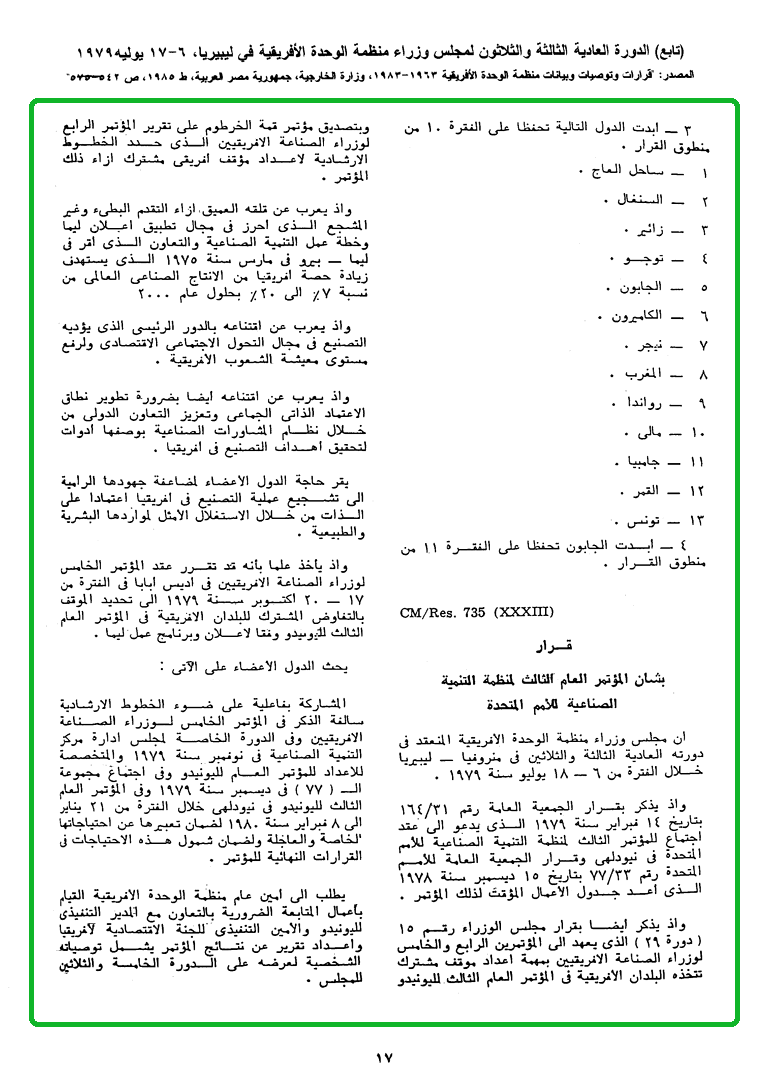 (تابع) الدورة العادية الثالثة والثلاثون لمجلس وزراء منظمة الوحدة الأفريقية في ليبيريا، ٦-١٧ يوليه ١٩٧٩
المصدر: "قرارات وتوصيات وبيانات منظمة الوحدة الأفريقية ١٩٦٣-١٩٨٣، وزارة الخارجية، جمهورية مصر العربية، ط ١٩٨٥، ص ٥٤٢-٥٧٥"
٣ ــ ابدت الدول التالية تحفظا على الفقرة ١٠ من
منطوق القرار .
١ ــ ساحل العاج .
٢ ــ السنغال .
٣ ــ زائير .
٤ ــ توجــو .
٥ ــ الجابون .
٦ ــ الكاميرون .
٧ ــ نيجر .
٨ ــ المغرب .
٩ ــ رواندا .
١٠ ــ مالى .
١١ ــ جامبيا .
١٢ ــ القمر .
١٣ ــ تونس .
٤ ــ أبــدت الجابون تحفظا على الفقــرة ١١ من
منطوق القــرار .
CM/Res. 735 (XXXIII)
قــرار
بشان المؤتمر العام الثالث لمنظمة التنمية
الصناعية للأمم المتحدة
ان مجلس وزراء منظمة الوحدة الافريقية المنعقد فى
دورته العادية الثالثة والثلاثين فى منروفيا ــ ليبيريا
خــلال الفترة من ٦ ــ ١٨ يوليو سنة ١٩٧٩ .
واذ يذكر بقــرار الجمعية العامة رقم ١٦٤/٣١
بتاريخ ١٤ فبراير سنة ١٩٧٩ الــذى يدعو الى عقد
اجتماع للمؤتمر الثالث لمنظمة التنمية الصناعية للأمم
المتحدة فى نيودلهى وقــرار الجمعية العامة للأمــم
المتحدة رقم ٧٧/٣٣ بتاريخ ١٥ ديسمبر سنة ١٩٧٨
الــذى أعــد جــدول الأعمال المؤقت لذلك المؤتمر .
واذ يذكر أيضــا بقرار مجلس الوزراء رقــم ١٥
( دورة ٢٩ ) الذى يعهد الى المؤتمرين الرابع والخامس
لوزراء الصناعة الافريقيين بمهمة اعداد موقف مشترك
تتخذه البلدان الافريقية فى المؤتمر العام الثالث لليونيدو
وبتصديق مؤتمر قمة الخرطوم على تقرير المؤتمر الرابع
لوزراء الصناعة الافريقيين الــذى حــدد الخطــوط
الارشادية لاعــداد مؤقف أفريقى مشترك ازاء ذلك
المؤتمر .
واذ يعرب عن قلقه العميق ازاء التقدم البطىء وغير
المشجع الــذى احرز فى مجال تطبيق اعــلان ليما
وخطة عمل التنمية الصناعية والتعاون الــذى أقر فى
ليما ــ بيرو فى مارس سنة ١٩٧٥ الــذى يستهدف
زيادة حصة أفريقيا من الانتاج الصناعى العالمى من
نسبة ٧٪ الى ٢٠٪ بحلول عام ٢٠٠٠
واذ يعرب عن اقتناعه بالدور الرئيسى الذى يؤديه
التصنيع فى مجال التحول الاجتماعى الاقتصادى ولرفع
مستوى معيشة الشعوب الأفريقية .
واذ يعرب عن اقتناعه أيضا بضرورة تطوير نطاق
الاعتماد الذاتى الجماعى وتعزيز التعاون الدولى من
خــلال نظــام المشاورات الصناعية بوصفها أدوات
لتحقيق أهــداف التصنيع فى أفريقيا .
يقر حاجة الدول الأعضاء لمضاعفة جهودها الرامية
الى تشــجيع عملية التصنيع فى أفريقيا اعتمادا على
الــذات من خــلال الاستغلال الأمثل لمواردها البشرية
والطبيعية .
واذ يأخذ علما بأنه قد تقــرر عقد المؤتمر الخامس
لوزراء الصناعة الافريقيين فى أديس أبابا فى الفترة من
١٧ ــ ٢٠ أكتوبر ســنة ١٩٧٩ الى تحديد الموقف
بالتفاوض المشترك للبلدان الافريقية فى المؤتمر العام
الثالث لليونيدو وفقا لاعــلان وبرنامج عمل ليما .
يحث الدول الأعضــاء على الآتى :
المشاركة بفاعلية على ضــوء الخطوط الارشادية
سالفة الذكر فى المؤتمر الخامس لــوزراء الصــناعة
الافريقيين وفى الدورة الخاصــة لمجلس ادارة مركز
التنمية الصناعية فى نوفمبر سنة ١٩٧٩ والمتخصصة
للاعداد للمؤتمر العــام لليونيدو وفى اجتماع مجموعة
الــ ( ٧٧ ) فى ديسمبر سنة ١٩٧٩ وفى المؤتمر العام
الثالث لليونيدو فى نيودلهى خلال الفترة من ٢١ يناير
الى ٨ فبراير سنة ١٩٨٠ لضمان تعبيرها عن احتياجاتها
الخاصة والعاجلة ولضمان شمول هــذه الاحتياجات فى
القرارات النهائية للمؤتمر .
يطلب الى أمين عام منظمة الوحدة الافريقية القيام
بأعمال المتابعة الضرورية بالتعاون مع المدير التنفيذى
لليونيدو والأمين التنفيذى للجنة الاقتصادية لأفريقيا
واعــداد تقرير عن نتــائج المؤتمر يشــمل توصياته
الشخصية لعرضه على الــدورة الخامسة والثلاثين
للمجلس .
١٧